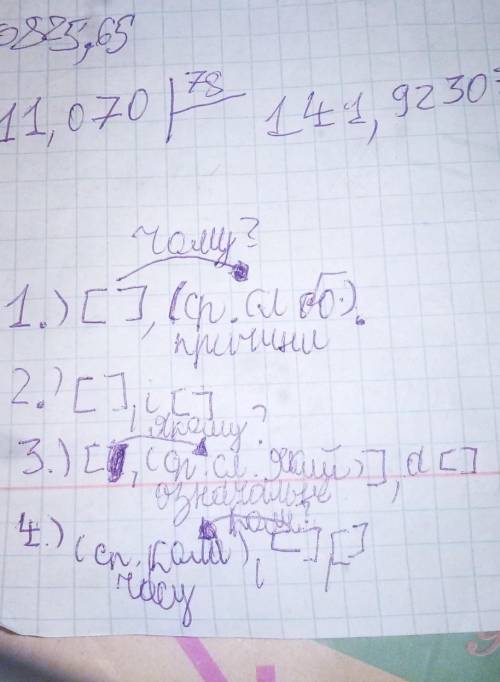 825,65
11,070 78 141,9230
чому?
1.) [ ], (сп. сл бо).
причини
2.) [ ], і [ ]
якому?
3.) [ , (сп. сл. який)], а [ ]
означальне
коли?
4.) (сп. коли), [ ] [ ]
часу